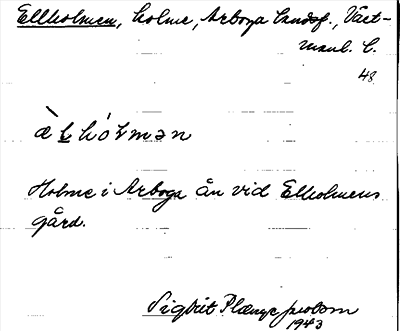 Ellholmen, holme, Arboga landsf., Väst-
manl. l.
48
æ̀ḷhóḷmən
Holme i Arboga ån vid Ellholmens
gård.
Sigbrit Plænge Jacobson
1943